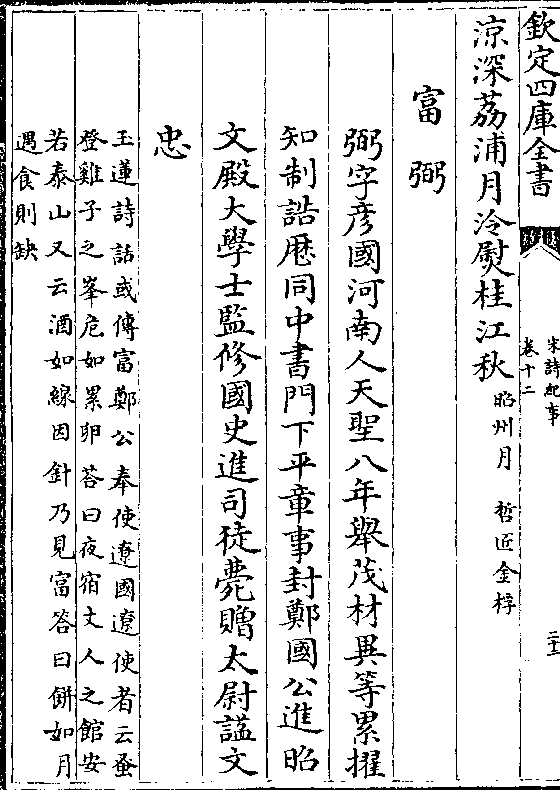 欽定四庫全書
宋詩紀事
卷十二
涼深荔浦月冷熨桂江秋
昭州月　哲匠金桴
富弼
弼字彦國河南人天聖八年舉茂材異等累擢
知制誥歴同中書門下平章事封鄭國公進昭
文殿大學士監修國史進司徒薨贈太尉諡文
忠
玉蓮詩話或傳富鄭公奉使遼國遼使者云蚤
登雞子之峯危如累卵荅曰夜宿丈人之館安
若泰山又云酒如線因針乃見富荅曰餅如月
遇食則缺